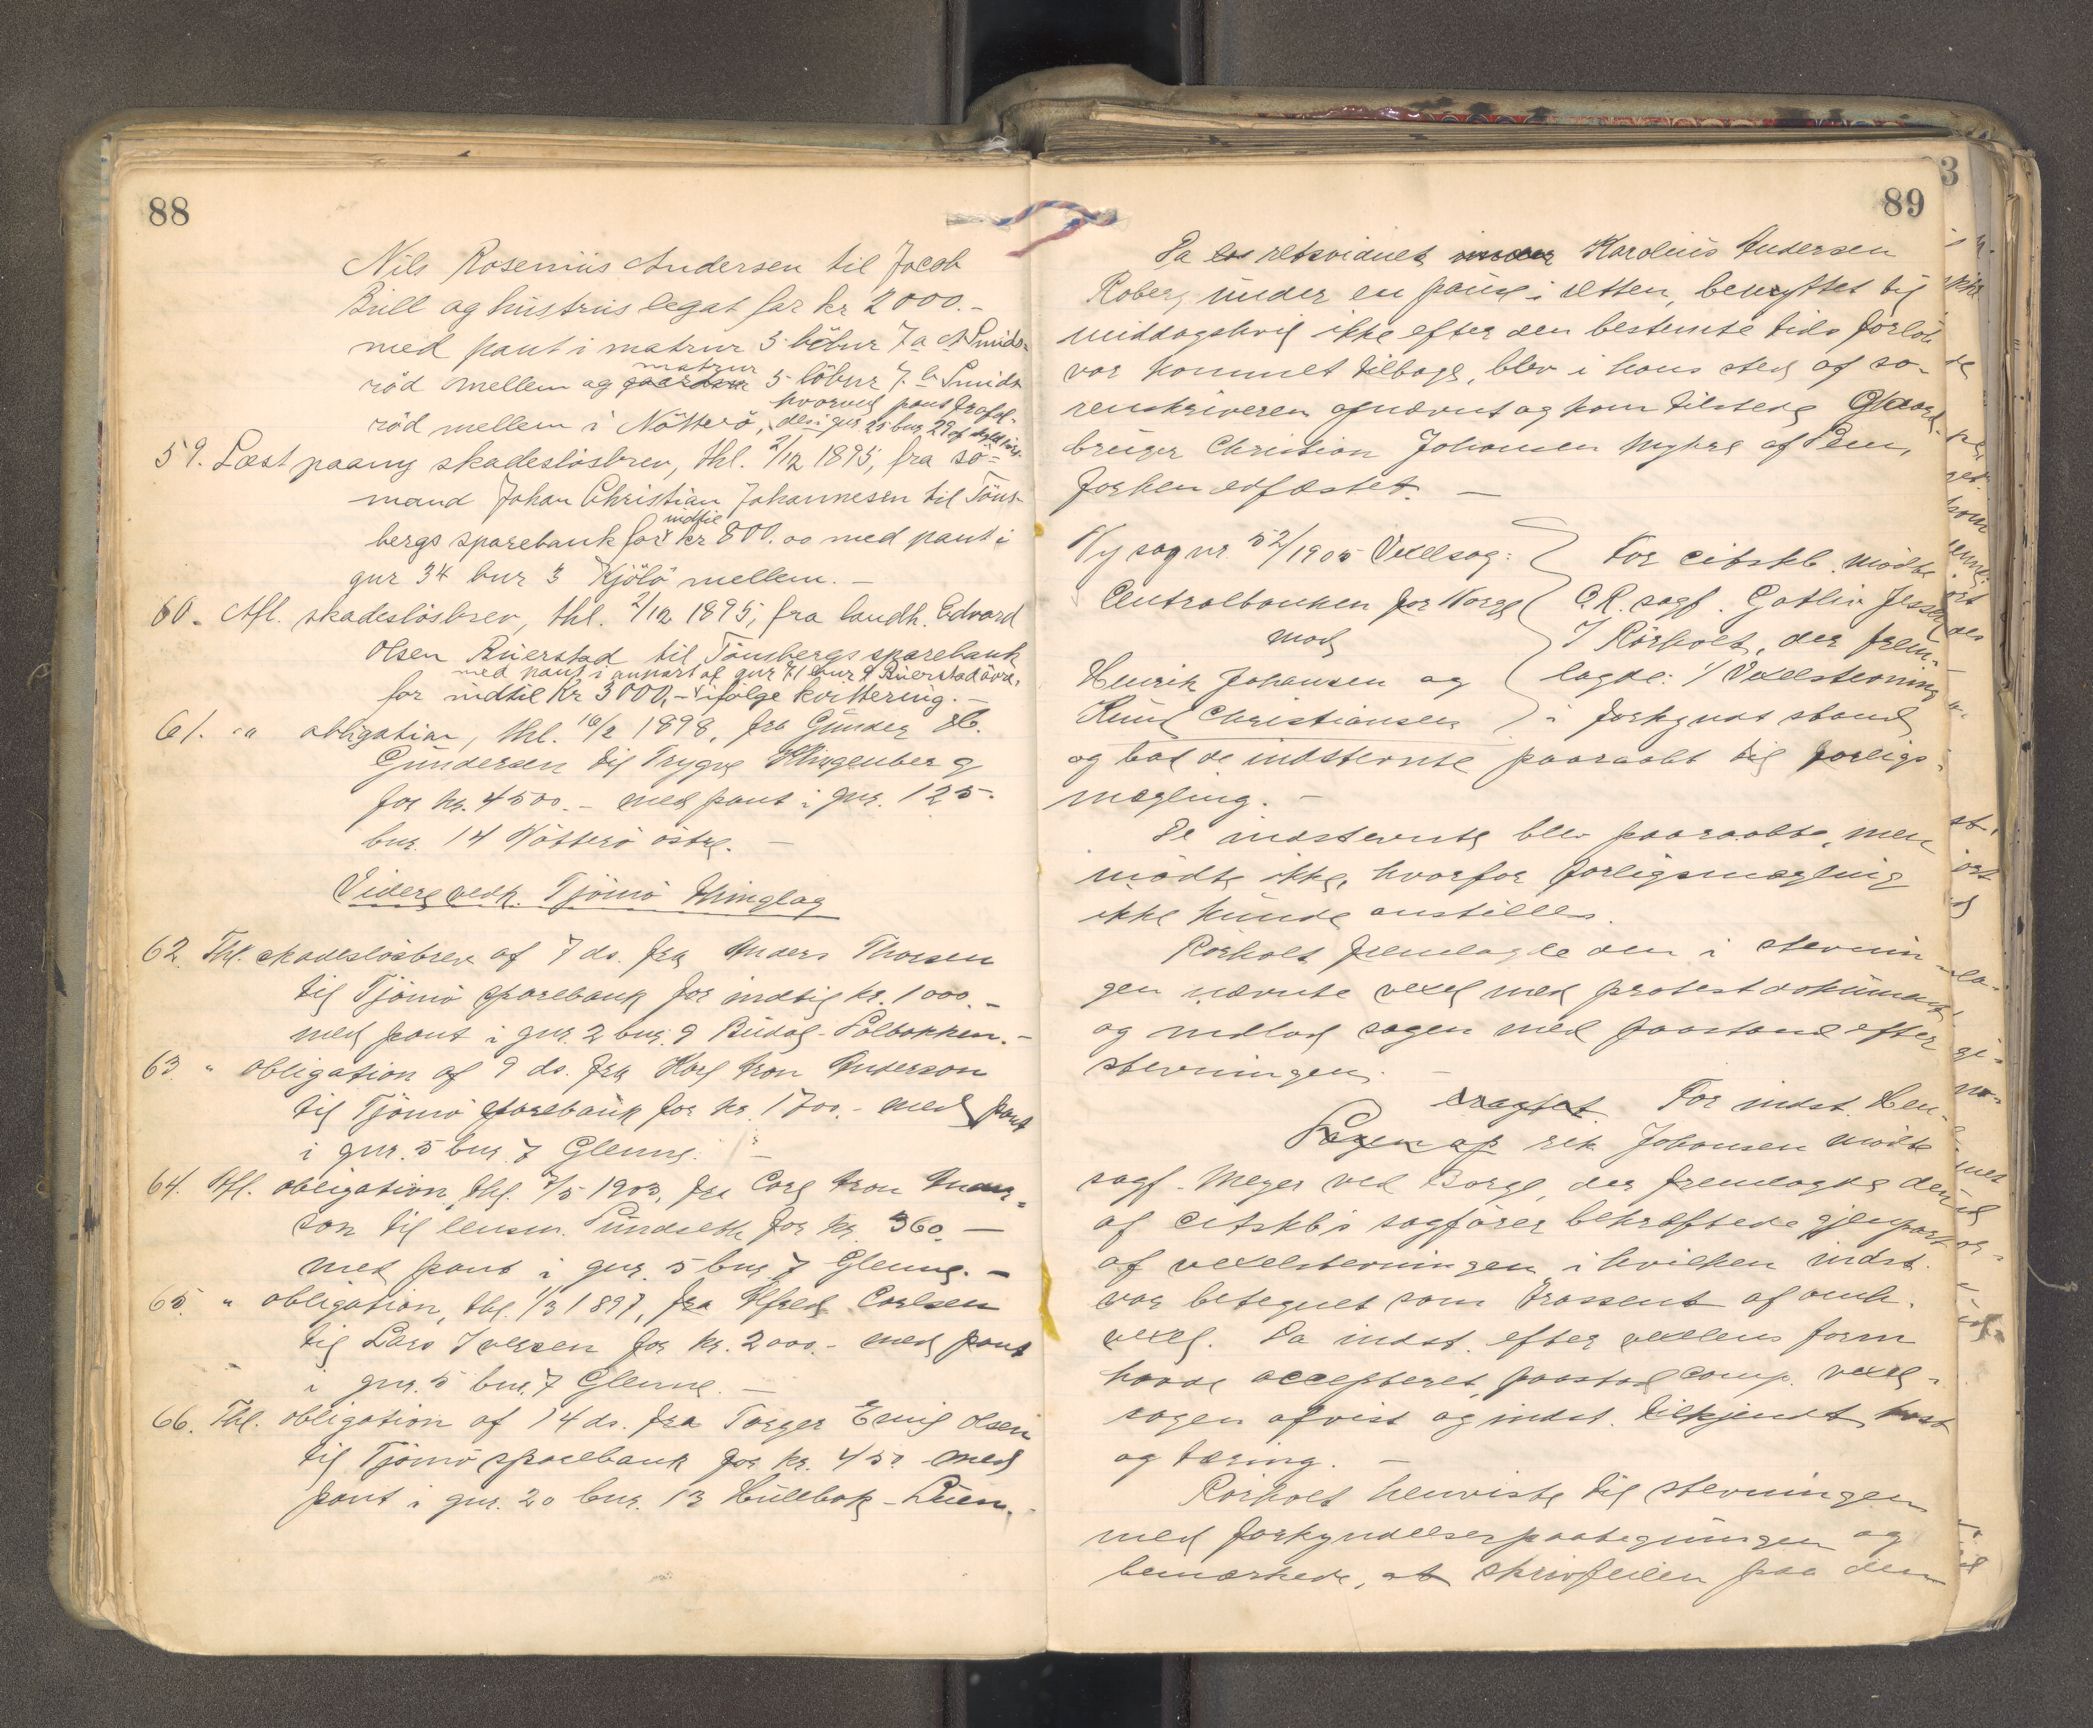 88
Nils Rosenius Andersen til Jacob
Bull og hustrus legat for kr 2000.-
med pant i matrnr 3 löbnr 7 a Smids-
matrnr
röd mellem og 5 löbnr 7 b Smids
hvorved pant frafal-
röd mellem i Nötterö, des i gnr 25 bnr 29 af
59. Læst paany skadeslösbrev, thl. 2/12 1895, fra sö-
mand Johan Christian Johannesen til Töns-
indtil
bergs sparebank for kr 800.00 med pant i
gnr 34 bnr 3 Kjölö mellem. —
60. Afl. skadeslösbrev, thl. 2/12 1895, fra landh. Edvard
Olsen Buerstad til Tönsbergs sparebank
med pant i anpart af gnr 71 bnr 9 Buerstad övre,
for indtil Kr 3000,- ifölge kvittering. —
61. " obligation, thl. 16/2 1898, fra Gunder
Gundersen til Trygve Klingenberg
for kr. 4500.- med pant i gnr. 125.
bnr. 14 Nötterö östre. —
Videre vedk. Tjömö thinglag
62. Thl. skadeslösbrev af 7 ds. fra Anders Thorsen
til Tjömö sparebank for indtil kr. 1000.-
med pant i gnr. 2 bnr. 9 Budal-Solbakken.-
63. " obligation af 9 ds. fra Karl Aron Anderson
til Tjömö sparebank for kr. 1700.- med pant
i gnr. 5 bnr. 7 Glenne. —
64. Afl. obligation, thl. 7/5 1903, fra Carl Aron Ander-
son til lensm. Sundseth for kr. 360.—
med pant i gnr. 5 bnr 7 Glenne.—
65. " obligation, thl. 1/3 1897, fra Alfred Carlsen
til Lars Iversen for kr. 2000.- med pant
i gnr. 5 bnr. 7 Glenne. —
66. Thl. obligation af 14 ds. fra Torger Emil Olsen
til Tjömö sparebank for kr. 450 med
pant i gnr. 20 bnr. 13 Hulebak-
89
Da retsvidnet Karolius Andersen
Roberg under en pause i retten, benyttet til
middagshvil ikke efter den bestemte tids forlöb
var kommet tilbage, blev i hans sted af so-
renskriveren opnævnt og kom tilstede Gaard-
bruger Christian Johansen Myhre af Sem,
forhen edfæstet. —
Ny sag nr. 52/1905 Vexelsag:
Centralbanken for Norge
mod
Henrik Johansen og
Knud Christiansen
For citskb. mödte
O.R. sagf. Gotlieb Jessen
v/ Rörholt, der frem-
lagde: 1/ Vexelstevning
i forkyndt stand
og bad de indstevnte paaraabt til forligs-
mægling. —
De indstevnte blev paaraabte, men
mödte ikke, hvorfor forligsmægling
ikke kunde anstilles.
Rörholt fremlagde den i stevnin-
gen nævnte vexel med protestdokument,
og indlod sagen med paastand efter
stevningen. —
For indst. Hen-
Sagen op rik Johansen mödte
sagf. Meyer ved Borge, der fremlagde den
af citskb's sagförer bekræftede gjenpart
af vexelstevningen, i hvilken indst.
var betegnet som trassent af omh.
vexel. Da indst. efter vexelens form
havde accepteret, paastod comp. vexel-
sagen afvist og indst. tilkjendt kost
og tæring. —
Rörholt henviste til stevningen
med forkyndelsespaategningen og
bemærkede, at skrivfeilen paa den